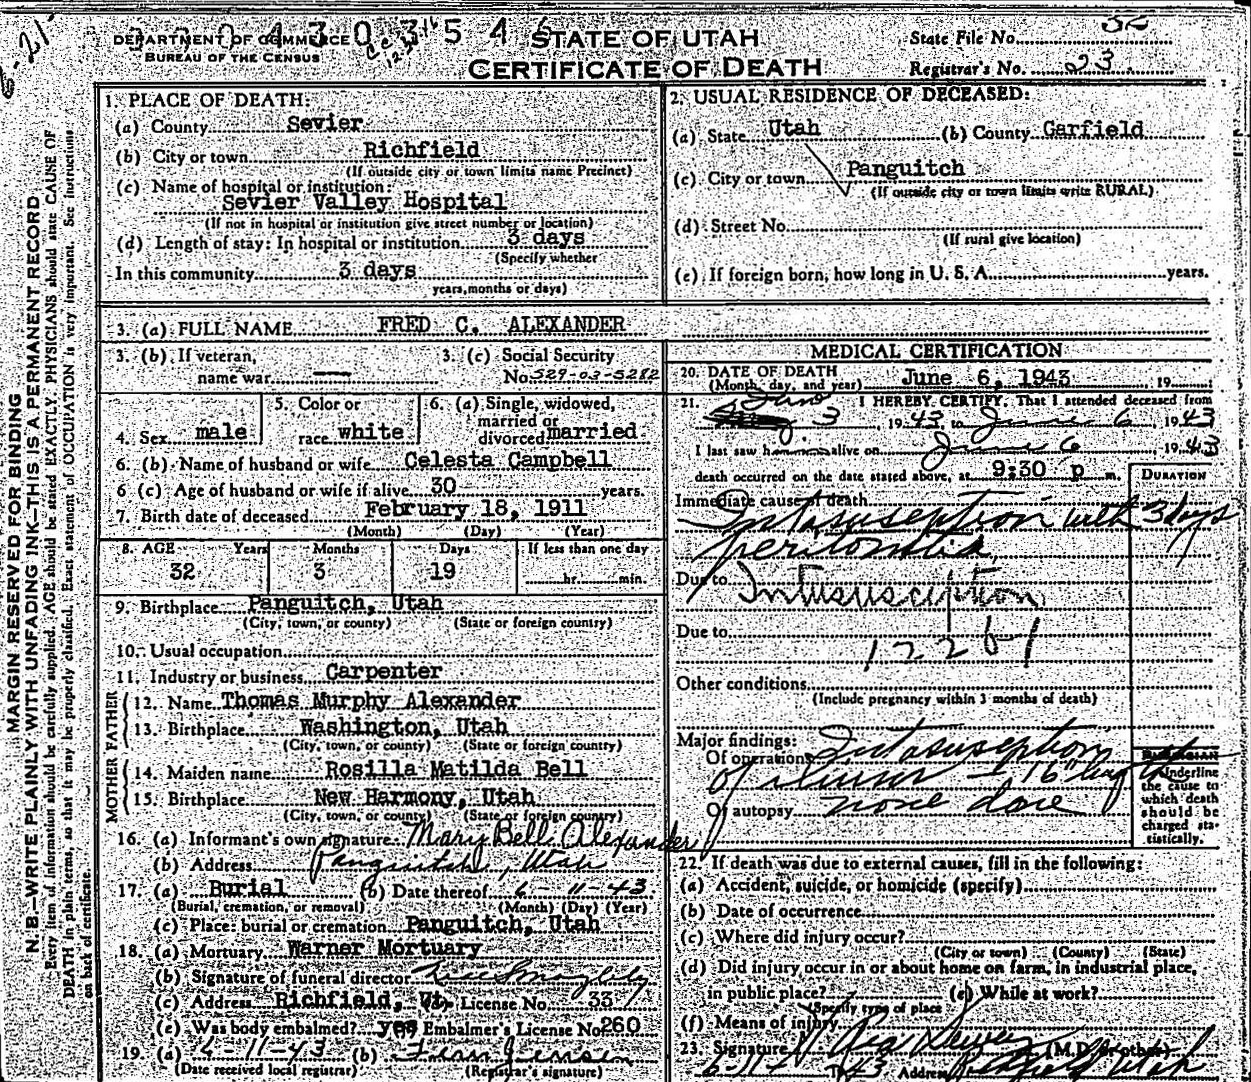 DEPARTMENT OF COMMERCE
BUREAU OF THE CENSUS
STATE OF UTAH
CERTIFICATE OF DEATH
State File No. 32
Registrar's No. 23
MARGIN RESERVED FOR BINDING
N. B.—WRITE PLAINLY WITH UNFADING INK—THIS IS A PERMANENT RECORD
Every item of information should be carefully supplied. AGE should be stated EXACTLY. PHYSICIANS should state CAUSE OF
DEATH in plain terms, so that it may be properly classified. Exact statement of OCCUPATION is very important. See instructions
on back of certificate.
1. PLACE OF DEATH:
(a) County Sevier
(b) City or town Richfield
(If outside city or town limits name Precinct)
(c) Name of hospital or institution:
Sevier Valley Hospital
(If not in hospital or institution give street number or location)
(d) Length of stay: In hospital or institution 3 days
(Specify whether
In this community 3 days
years, months or days)
2. USUAL RESIDENCE OF DECEASED:
(a) State Utah (b) County Garfield
(c) City or town Panguitch
(If outside city or town limits write RURAL)
(d) Street No.
(If rural give location)
(e) If foreign born, how long in U. S. A. years.
3. (a) FULL NAME FRED C. ALEXANDER
3. (b) If veteran, name war —
3. (c) Social Security No. 529-03-5282
4. Sex male
5. Color or race white
6. (a) Single, widowed, married or divorced married
6. (b) Name of husband or wife Celesta Campbell
6 (c) Age of husband or wife if alive 30 years.
7. Birth date of deceased February 18, 1911
(Month) (Day) (Year)
8. AGE Years Months Days If less than one day
32 3 19 hr. min.
9. Birthplace Panguitch, Utah
(City, town, or county) (State or foreign country)
10. Usual occupation
11. Industry or business Carpenter
FATHER
12. Name Thomas Murphy Alexander
13. Birthplace Washington, Utah
(City, town, or county) (State or foreign country)
MOTHER
14. Maiden name Rosilla Matilda Bell
15. Birthplace New Harmony, Utah
(City, town, or county) (State or foreign country)
16. (a) Informant's own signature Mary Bell Alexander
(b) Address Panguitch, Utah
17. (a) Burial (b) Date thereof 6-11-43
(Burial, cremation, or removal) (Month) (Day) (Year)
(c) Place: burial or cremation Panguitch, Utah
18. (a) Mortuary Warner Mortuary
(b) Signature of funeral director
(c) Address Richfield, Ut. License No. 337
(e) Was body embalmed? yes Embalmer's License No. 260
19. (a) 6-11-43 (b) Fern Jensen
(Date received local registrar) (Registrar's signature)
MEDICAL CERTIFICATION
20. DATE OF DEATH
(Month, day, and year) June 6, 1943, 19
21. I HEREBY CERTIFY, That I attended deceased from
June 3, 1943, to June 6, 1943
I last saw h alive on June 6, 1943
death occurred on the date stated above, at 9:30 p m.
DURATION
Immediate cause of death
Intususception with 3 days
peritonitis
Due to Intususception
Due to
122 b 1
Other conditions
(Include pregnancy within 3 months of death)
Major findings:
Of operations Intasusception
of 16" length
Of autopsy none done
PHYSICIAN
Underline
the cause to
which death
should be
charged sta-
tistically.
22. If death was due to external causes, fill in the following:
(a) Accident, suicide, or homicide (specify)
(b) Date of occurrence
(c) Where did injury occur?
(City or town) (County) (State)
(d) Did injury occur in or about home on farm, in industrial place,
in public place? (e) While at work?
(Specify type of place
(f) Means of injury
23. Signature (M.D. or other)
6-11-43 Address Richfield Utah